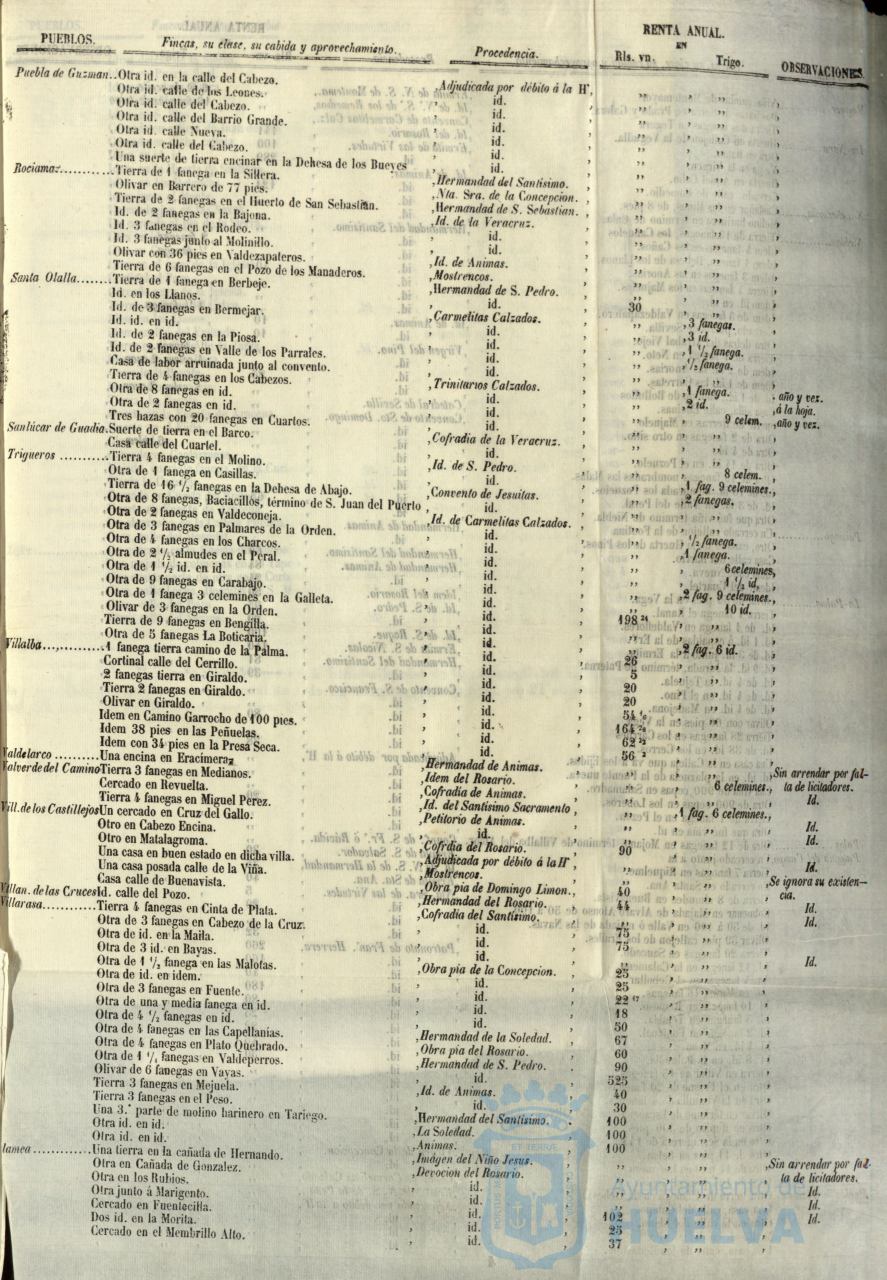 RENTA ANUAL.
PUEBLOS. Fincas, su clase, su cabida y aprovechamiento. Procedencia. EN
Rls. vn. Trigo. OBSERVACIONES
Puebla de Guzman..Otra id. en la calle del Cabezo. ,Adjudicada por débito á la Hª,
Otra id. calle de los Leones. id.
Otra id. calle del Cabezo. id.
Otra id. calle del Barrio Grande. id.
Otra id. calle Nueva. id.
Otra id. calle del Cabezo. id.
Una suerte de tierra encinar en la Dehesa de los Bueyes id.
Rociamar............Tierra de 1 fanega en la Sillera. ,Hermandad del Santísimo.
Olivar en Barrero de 77 pies. ,Nta. Sra. de la Concepcion.
Tierra de 2 fanegas en el Huerto de San Sebastian. ,Hermandad de S. Sebastian.
Id. de 2 fanegas en la Bajona. ,Id. de la Veracruz.
Id. 3 fanegas en el Rodeo. id.
Id. 3 fanegas junto al Molinillo. id.
Olivar con 36 pies en Valdezapateros. ,Id. de Animas.
Tierra de 6 fanegas en el Pozo de los Manaderos. ,Mostrencos.
Santa Olalla........Tierra de 1 fanega en Berbeje. ,Hermandad de S. Pedro.
Id. en los Llanos. id. 30
Id. de 3 fanegas en Bermejar. ,Carmelitas Calzados. ,3 fanegas.
Id. id. en id. id. ,3 id.
Id. de 2 fanegas en la Piosa. id. ,1 ½ fanega.
Id. de 2 fanegas en Valle de los Parrales. id. ,½ fanega.
Casa de labor arruinada junto al convento. id.
Tierra de 4 fanegas en los Cabezos. ,Trinitarios Calzados. ,1 fanega. ,año y vez.
Otra de 8 fanegas en id. id. ,2 id. ,á la hoja.
Otra de 2 fanegas en id. id. 9 celem. ,año y vez.
Tres hazas con 20 fanegas en Cuartos. id.
Sanlúcar de Guadia.Suerte de tierra en el Barco. ,Cofradia de la Veracruz.
Casa calle del Cuartel. id.
Trigueros ..........Tierra 4 fanegas en el Molino. ,Id. de S. Pedro. 8 celem.
Otra de 1 fanega en Casillas. id. ,1 fag. 9 celemines.,
Tierra de 16 ½ fanegas en la Dehesa de Abajo. ,Convento de Jesuitas. ,2 fanegas.
Otra de 8 fanegas, Baciacillos, término de S. Juan del Puerto id.
Otra de 2 fanegas en Valdeconeja. ,Id. de Carmelitas Calzados.
Otra de 3 fanegas en Palmares de la Orden. id. ,½ fanega.
Otra de 4 fanegas en los Charcos. id. ,1 fanega.
Otra de 2 ½ almudes en el Peral. id. 6 celemines,
Otra de 1 ½ id. en id. id. 1 ½ id,
Otra de 9 fanegas en Carabajo. id. ,2 fag. 9 celemines.,
Otra de 1 fanega 3 celemines en la Galleta. id. 10 id.
Olivar de 3 fanegas en la Orden. id. 198 24
Tierra de 9 fanegas en Bengilla. id.
Otra de 5 fanegas La Boticaria. id. ,2 fag. 6 id.
Villalba..............1 fanega tierra camino de la Palma. id. 26
Cortinal calle del Cerrillo. id. 5
2 fanegas tierra en Giraldo. id. 20
Tierra 2 fanegas en Giraldo. id. 20
Olivar en Giraldo. id. 54
Idem en Camino Garrocho de 100 pies. id. 164
Idem 38 pies en las Peñuelas. id. 62
Idem con 34 pies en la Presa Seca. id. 56 2
Valdelarco ..........Una encina en Eracimera, ,Hermandad de Animas. ,Sin arrendar por fal-
Valverde del CaminoTierra 3 fanegas en Medianos. ,Idem del Rosario. 6 celemines., ta de licitadores.
Cercado en Revuelta. ,Cofradia de Animas. Id.
Tierra 4 fanegas en Miguel Perez. ,Id. del Santísimo Sacramento ,1 fag. 6 celemines.,
Vill. de los CastillejosUn cercado en Cruz del Gallo. ,Petitorio de Animas. Id.
Otro en Cabezo Encina. id. Id.
Otro en Matalagroma. ,Cofrdia del Rosario. 90
Una casa en buen estado en dicha villa. ,Adjudicada por débito á la Hª Id.
Una casa posada calle de la Viña. ,Mostrencos. ,Se ignora su existen-
Casa calle de Buenavista. ,Obra pia de Domingo Limon. 40 cia.
Villan. de las CrucesId. calle del Pozo. ,Hermandad del Rosario. 44 Id.
Villarasa............Tierra 4 fanegas en Cinta de Plata. ,Cofradia del Santísimo. Id.
Otra de 3 fanegas en Cabezo de la Cruz. id. 75
Otra de id. en la Maila. id. 75
Otra de 3 id. en Bayas. id. Id.
Otra de 1 ½ fanega en las Malotas. ,Obra pia de la Concepcion. 25
Otra de id. en idem. id. 25
Otra de 3 fanegas en Fuente. id. 22 17
Otra de una y media fanega en id. id. 18
Otra de 4 ½ fanegas en id. id. 50
Otra de 4 fanegas en las Capellanías. ,Hermandad de la Soledad. 67
Otra de 4 fanegas en Plato Quebrado. ,Obra pia del Rosario. 60
Otra de 1 ½ fanegas en Valdeperros. ,Hermandad de S. Pedro. 90
Olivar de 6 fanegas en Vayas. id. 525
Tierra 3 fanegas en Mejuela. ,Id. de Animas. 40
Tierra 3 fanegas en el Peso. id. 30
Una 3.ª parte de molino harinero en Tariego. ,Hermandad del Santísimo. 100
Otra id. en id. ,La Soledad. 100
Otra id. en id. ,Animas. 100
lamea...............Una tierra en la cañada de Hernando. ,Imágen del Niño Jesus. ,Sin arrendar por fal-
Otra en Cañada de Gonzalez. ,Devocion del Rosario. ta de licitadores.
Otra en los Rubios. id. Id.
Otra junto á Marigento. id. Id.
Cercado en Fuentecilla. id. 102 Id.
Dos id. en la Morita. id. 25
Cercado en el Membrillo Alto. id. 37
Ayuntamiento de
HUELVA